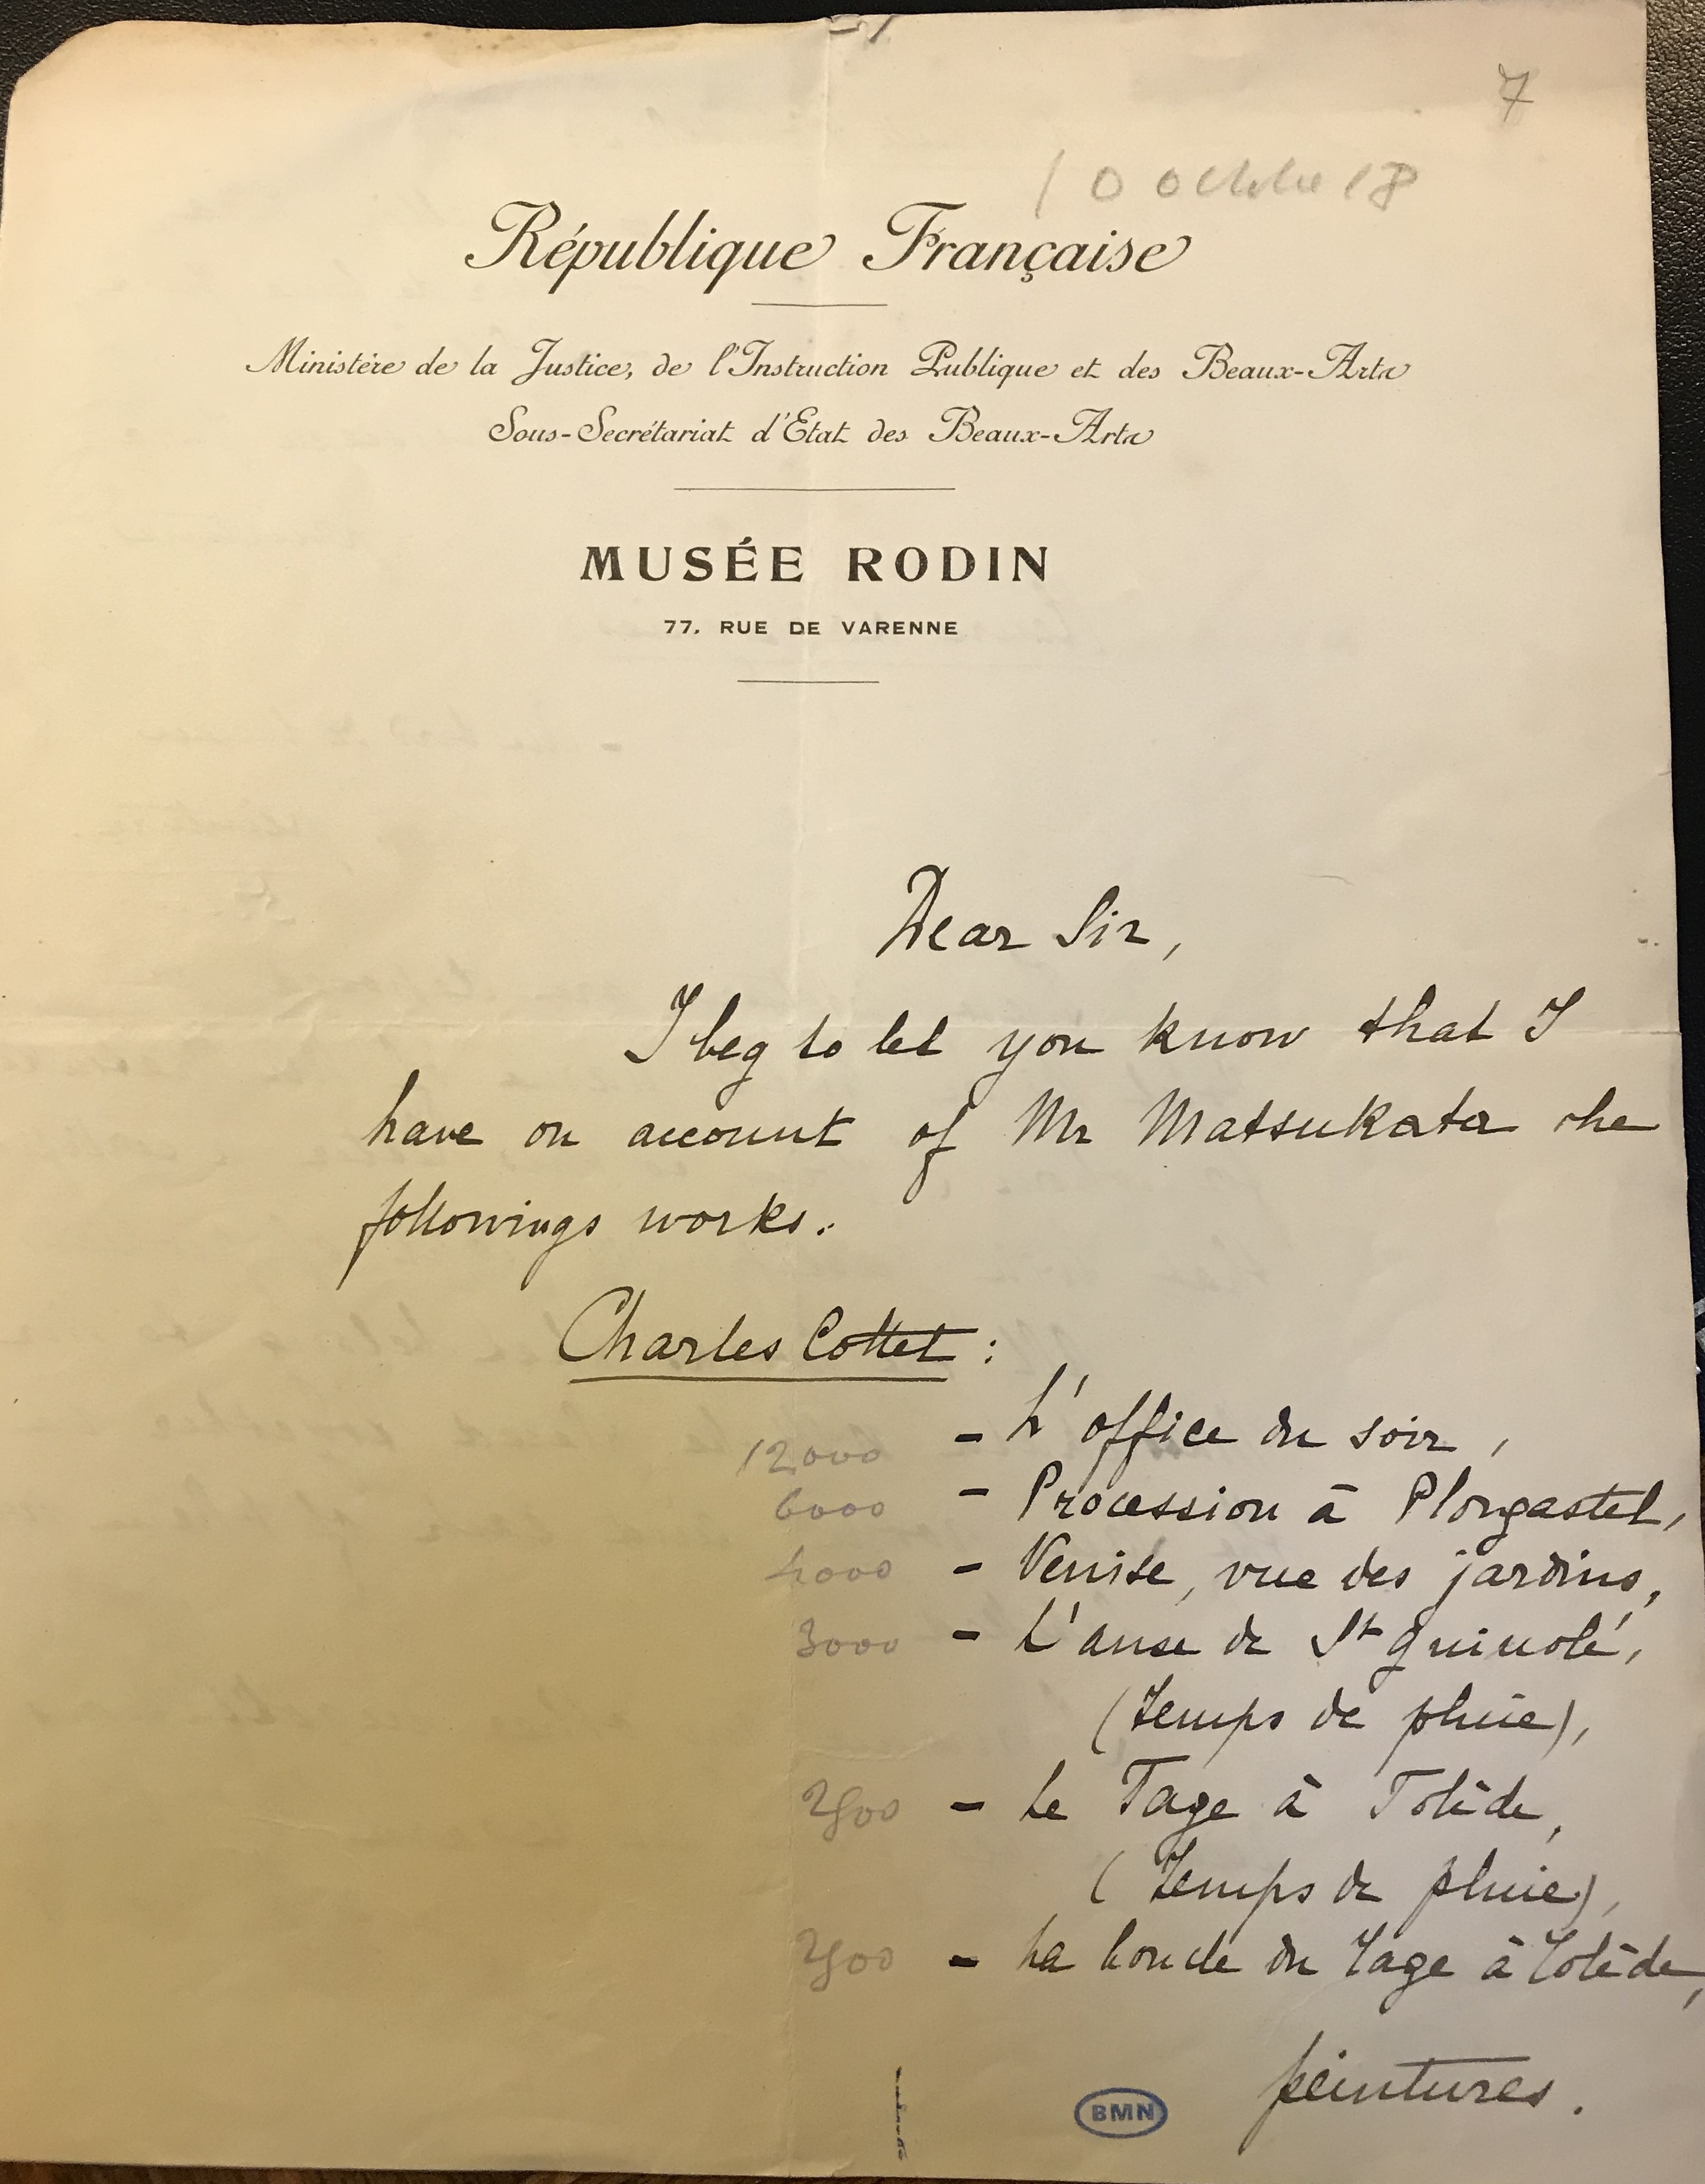 7
10 octobre 18
République Française
Ministère de la Justice, de l'Instruction Publique et des Beaux-Arts
Sous-Secrétariat d'Etat des Beaux-Arts
MUSÉE RODIN
77, RUE DE VARENNE
Dear Sir,
I beg to let you know that I
have on account of Mr Matsukata the
followings works:
Charles Cottet :
12000 - L'office du soir,
6000 - Procession à Plougastel,
4000 - Venise, vue des jardins,
3000 - L'anse de St Guinolé,
(Temps de pluie),
2500 - Le Tage à Tolède,
(Temps de pluie),
2500 - La boucle du Tage à Tolède,
peintures.
BMN